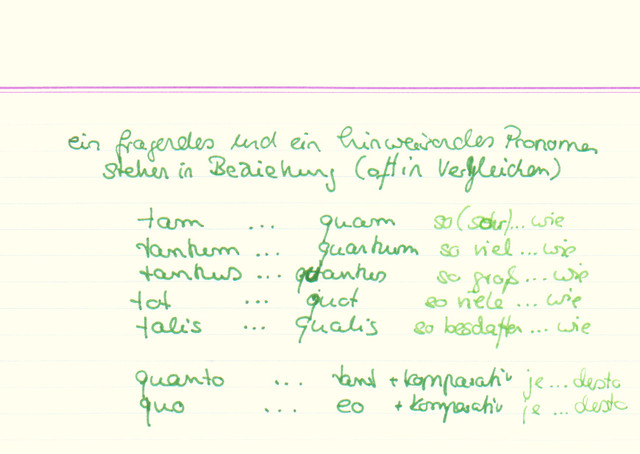 ein fragendes und ein hinweisendes Pronomen
stehen in Beziehung (oft in Vergleichen)
tam ... quam so (sehr) ... wie
tantum ... quantum so viel ... wie
tantus ... quantus so groß ... wie
tot ... quot so viele ... wie
talis ... qualis so beschaffen ... wie
quanto ... + Komparativ je ... desto
quo ... eo + Komparativ je ... desto